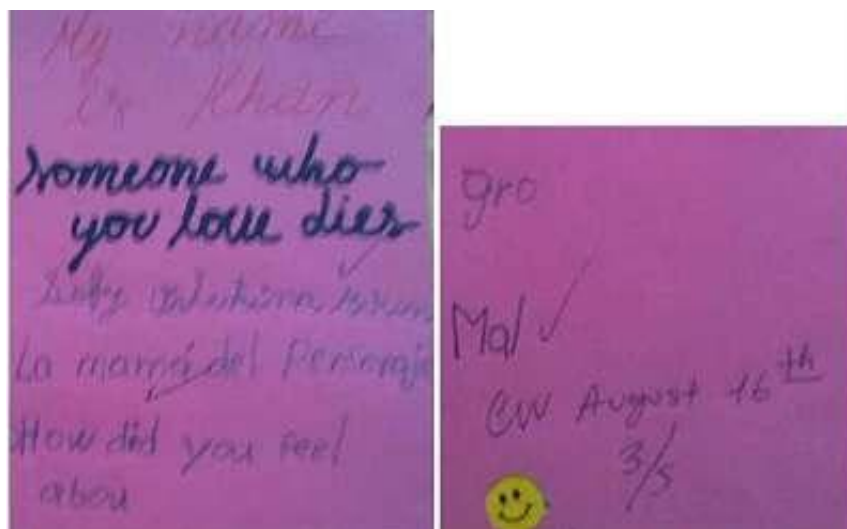 My name
is Khan
someone who
you love dies
La mamá del Personaje
How did you feel
abou
gro
Mal
CW August 16th
3/5